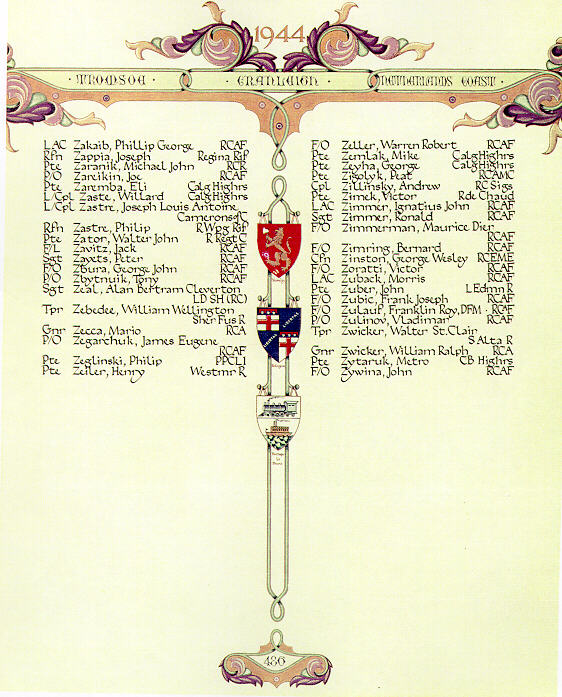 1944
TROMSOE · CRANLEIGH · NETHERLANDS COAST
LAC Zakaib, Phillip George RCAF
Rfn Zappia, Joseph Regina Rif
Pte Zaranik, Michael John RCR
P/O Zareikin, Joe RCAF
Pte Zaremba, Eli Calg Highrs
L/Cpl Zaste, Willard Calg Highrs
L/Cpl Zastre, Joseph Louis Antoine
Camerons of C
Rfn Zastre, Philip R Wpg Rif
Pte Zator, Walter John R Regt C
F/L Zavitz, Jack RCAF
Sgt Zayets, Peter RCAF
F/O Zbura, George John RCAF
P/O Zbytnuik, Tony RCAF
Sgt Zeal, Alan Bertram Cleverton
LD SH (RC)
Tpr Zebedee, William Wellington
Sher Fus R
Gnr Zecca, Mario RCA
P/O Zegarchuk, James Eugene
RCAF
Pte Zeglinski, Philip PPCLI
Pte Zeiler, Henry Westmr R
F/O Zeller, Warren Robert RCAF
Pte Zemlak, Mike Calg Highrs
Pte Zeyha, George Calg Highrs
Pte Zigolyk, Peat RCAMC
Cpl Zillinsky, Andrew RC Sigs
Pte Zimek, Victor R de Chaud
LAC Zimmer, Ignatius John RCAF
Sgt Zimmer, Ronald RCAF
F/O Zimmerman, Maurice Dier
RCAF
F/O Zimring, Bernard RCAF
Cfn Zinston, George Wesley RCEME
F/O Zoratti, Victor RCAF
LAC Zuback, Morris RCAF
Pte Zuber, John L Edmn R
F/O Zubic, Frank Joseph RCAF
F/O Zulauf, Franklin Roy, DFM · RCAF
P/O Zulinov, Vladimar RCAF
Tpr Zwicker, Walter St. Clair
S Alta R
Gnr Zwicker, William Ralph RCA
Pte Zytaruk, Metro CB Highrs
F/O Zywina, John RCAF
486